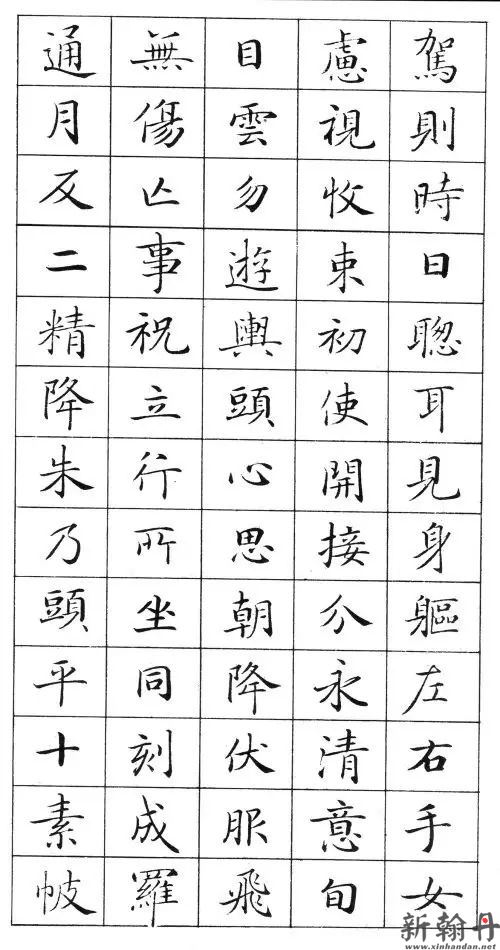 駕則時日聰耳見身軀左右手女
慮視收束初使開接分永清意旬
目雲勿遊輿頭心思朝降伏服飛
無傷亡事祝立行所坐同刻成羅
通月反二精降朱乃頭平十素帔
新翰丹
www.xinhandan.net